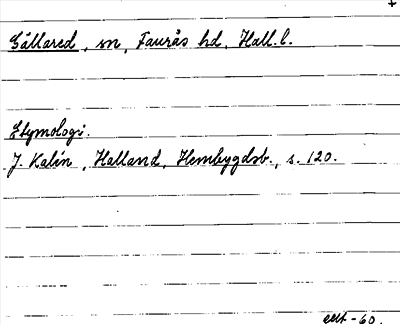 +
Gällared, sn, Faurås hd, Hall. l.
Etymologi.
J. Kalén, Halland, Hembygdsb., s. 120.
-60.